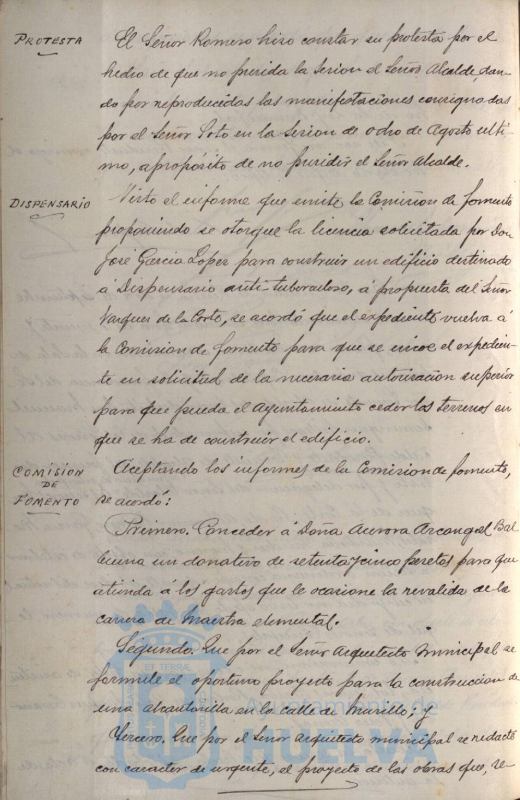 PROTESTA
El Señor Romero hiso constar su protesta por el
hecho de que no presida la Sesion el Señor Alcalde, dan-
do por reproducidas las manifestaciones consignadas
por el Señor Soto en la Sesion de ocho de Agosto ulti-
mo, a propósito de no presidir el Señor Alcalde.
DISPENSARIO
Visto el informe que emite la Comision de fomento
proponiendo se otorgue la licencia solicitada por Don
José Garcia Lopez para construir un edificio destinado
a Dispensario anti-tuberculoso, á propuesta del Señor
Vazquez de la Corte, se acordó que el expediente vuelva á
la Comision de fomento para que se incoe el expedien-
te en solicitud de la necesaria autorizacion superior
para que pueda el Ayuntamiento ceder los terrenos en
que se ha de construir el edificio.
COMISION
DE
FOMENTO
Aceptando los informes de la Comision de fomento,
se acordó:
Primero. Conceder á Doña Aurora Arcangel Bal
buena un donativo de setenta y cinco pesetas para que
atienda á los gastos que le ocasione la revalida de la
carrera de Maestra elemental.
Segundo. Que por el Señor Arquitecto Municipal se
formule el oportuno proyecto para la construccion de
una alcantarilla en la calle de Murillo; y
Tercero. Que por el Señor Arquitecto municipal se redacte
con caracter de urgente, el proyecto de las obras que, se-
ET TERRAE
Ayuntamiento de
HUELVA